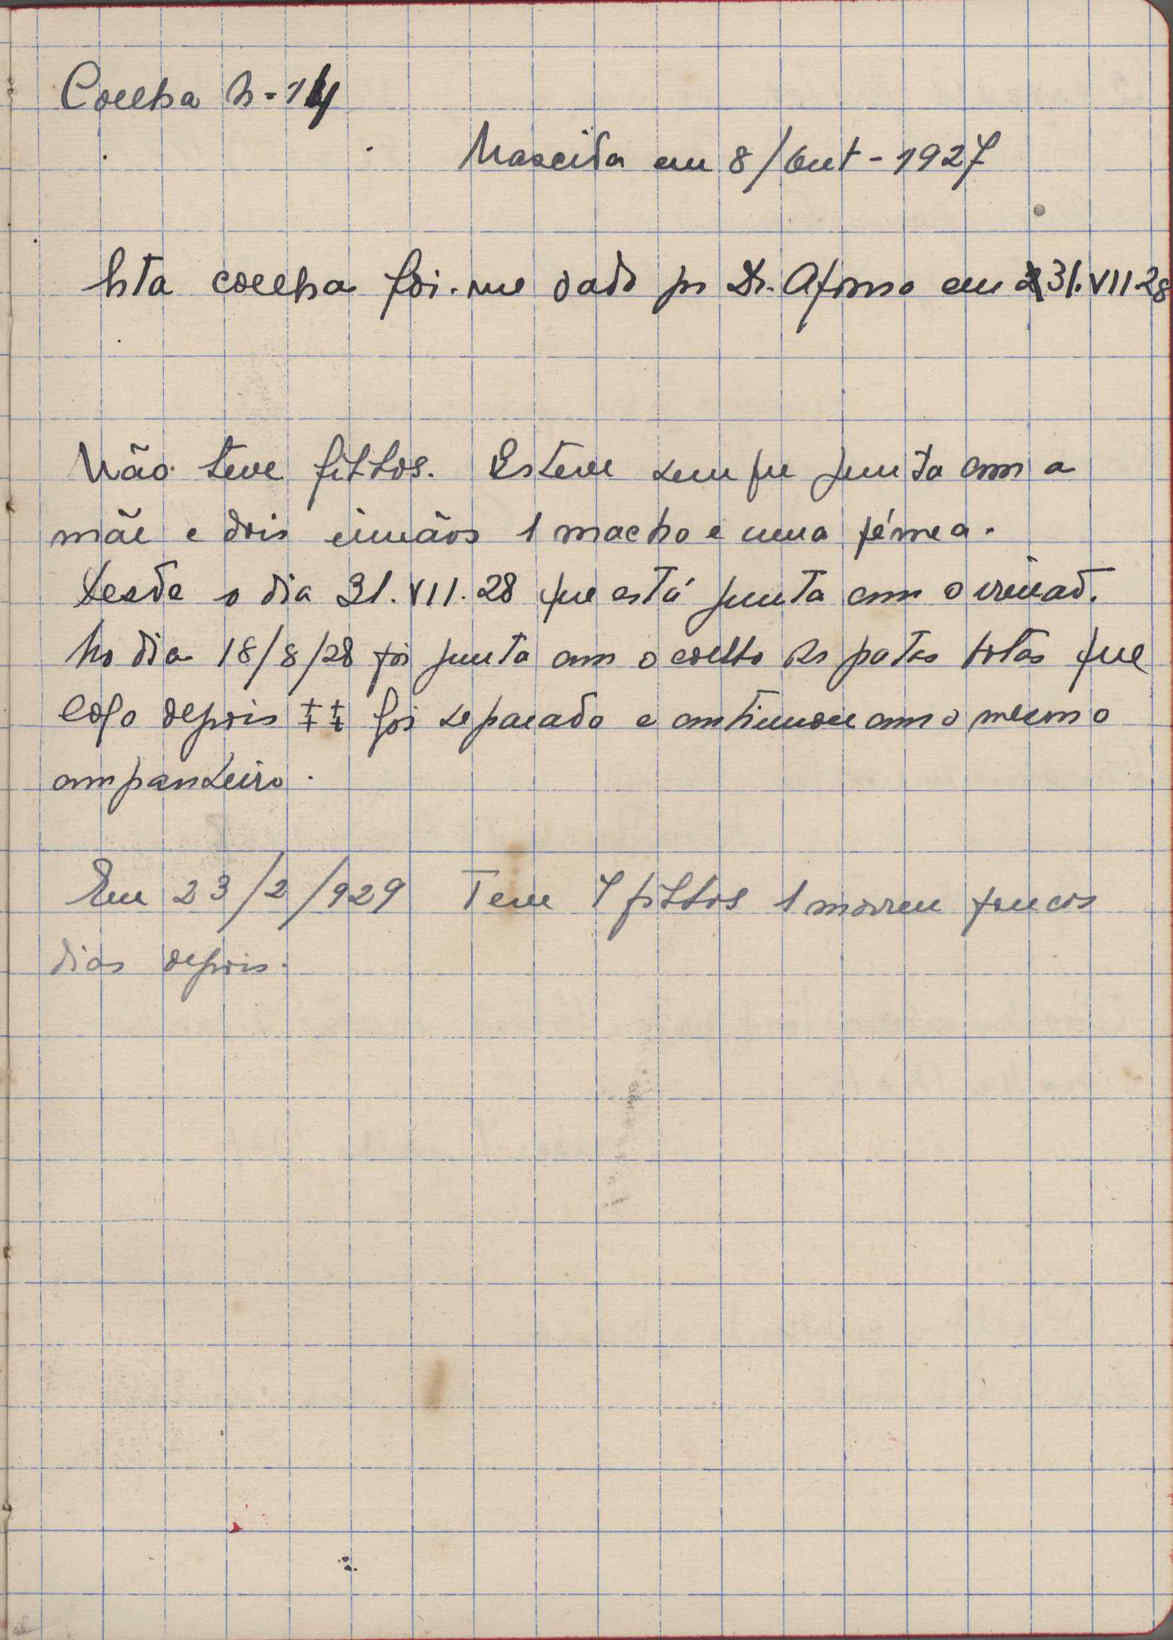 Coelha N-14
Nascida em 8/Out-1927
Esta coelha foi-me dado por Dr. Afonso em 31.VII.28
Não teve filhos. Esteve sempre junta com a
mãe e dois irmãos 1 macho e uma fémea.
Desde o dia 31.VII.28 que está junta com o
No dia 18/8/28 foi junta com o coelho das patas tortas que
logo depois ‡‡ foi separado e continuou com o mesmo
companheiro.
Em 23/2/929 Teve 7 filhos 1 morreu poucos
dias depois.